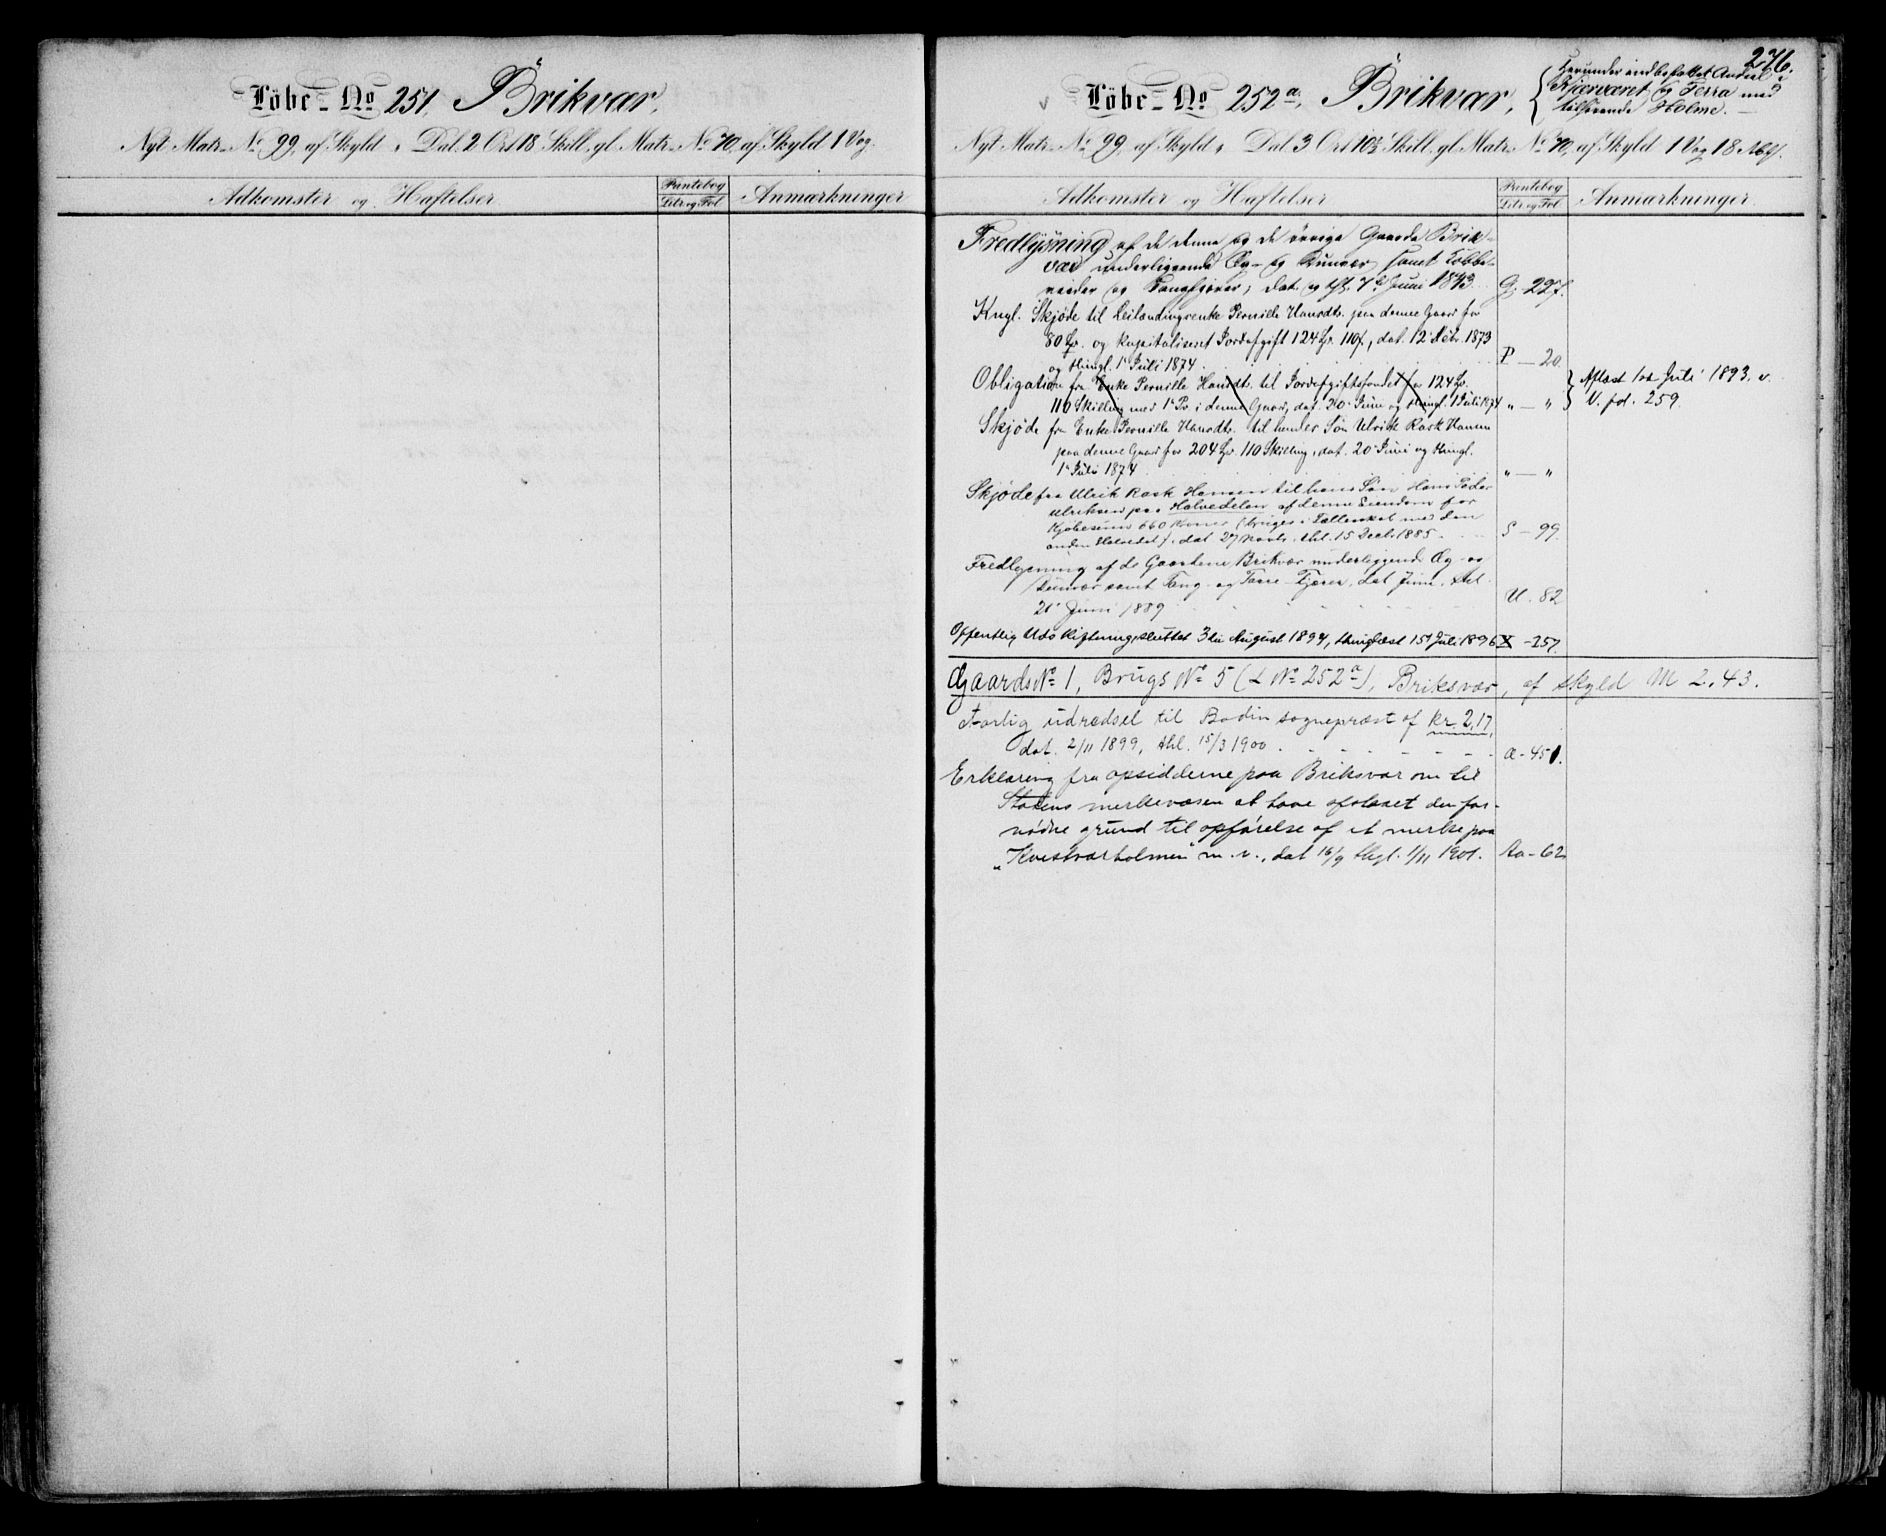 Löbe-No 251, Brikvær.
Nyt Matr.-No 99, af Skyld " Dal. 2 Ort 18 Skill, gl. Matr.-No 70, af Skyld 1 Vog.
Adkomster og Hæftelser
Pantebog
Litr. og Fol.
Anmærkninger
276.
Löbe-No 252a, Brikvær,
Herunder indbefattet Andeel i
Kjærværet og Terra med
tilhørende Holme.
Nyt Matr.-No 99, af Skyld " Dal. 3 Ort 10½ Skill, gl. Matr.-No 70, af Skyld 1 Vog 18 Mk.
Adkomster og Hæftelser
Pantebog
Litr. og Fol.
Anmærkninger.
Fredlysning af de denne og de øvrige Gaarde Brik-
vær underliggende Æg- og Dunvær samt Kobbe-
veider og Tangfjærer, dat. og thl. 7de Juni 1843. G. 227.
Kngl. Skjøde til Leilændingsenke Pernille Hansdtr. paa denne Gaard for
80 Spd. og kapitaliseret Jordafgift 124 Spd. 110 s, dat. 12 Debr. 1873
og thingl. 1 Juli 1874. P - 20
Obligation fra Enke Pernille Hansdtr. til Jordafgiftsfondet for 124 Spd.
110 Skilling med 1ste Pr. i denne Gaard, dat. 20 Juni og thingl. 1 Juli 1874 " - "
Aflæst 1ste Juli 1893. v.
U. fol. 259.
Skjøde fra Enke Pernille Hansdtr. til hendes Søn Ulrik Rask Hansen
paa denne Gaard for 204 Spd. 110 Skilling, dat. 20 Juni og thingl.
1 Juli 1874 " - "
Skjøde fra Ulrik Rask Hansen til hans Søn Hans Peder
Ulriksen paa Halvedelen af denne Eiendom for
Kjøbesum 660 Kroner (bruges i Fællesskab med den
anden Halvedel), dat 27 Novb., thl. 15 Decb. 1885. S - 99.
Fredlysning af de Gaardene Brikvær underliggende Æg- og
Dunvær samt Tang- og Tare-Fjærer, dat Juni, thl.
21 Juni 1889 U. 82
Offentlig Udskiftning, sluttet 3die August 1894, thinglæst 15 Juli 1896 X - 257.
Gaards No 1, Brugs No 5 (L No 252a), Briksvær, af skyld M 2.43.
Aarlig udredsel til Bodin sogneprest af kr. 2,17
dat. 2/11 1899, thl. 15/3 1900. a - 451.
Erklæring fra opsidderne paa Briksvær om til
Statens merkevæsen at have afstaaet den for-
nødne grund til opførelse af et merke paa
"Kvestværholmen" m. v., dat 16/9 thgl. 1/11 1901. Aa - 62